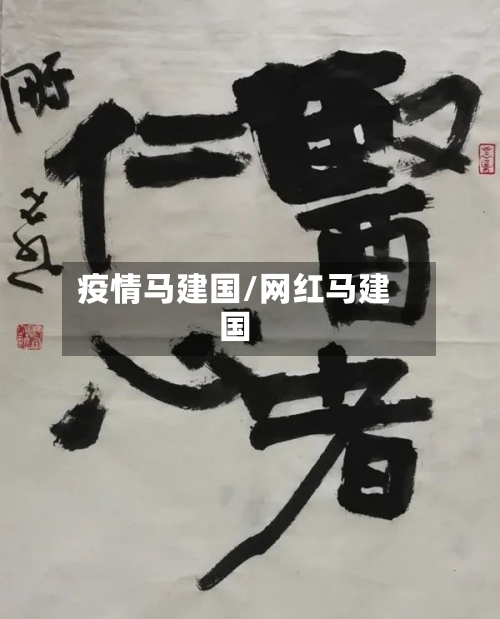 醫者
仁心
疫情马建国/网红马建
国